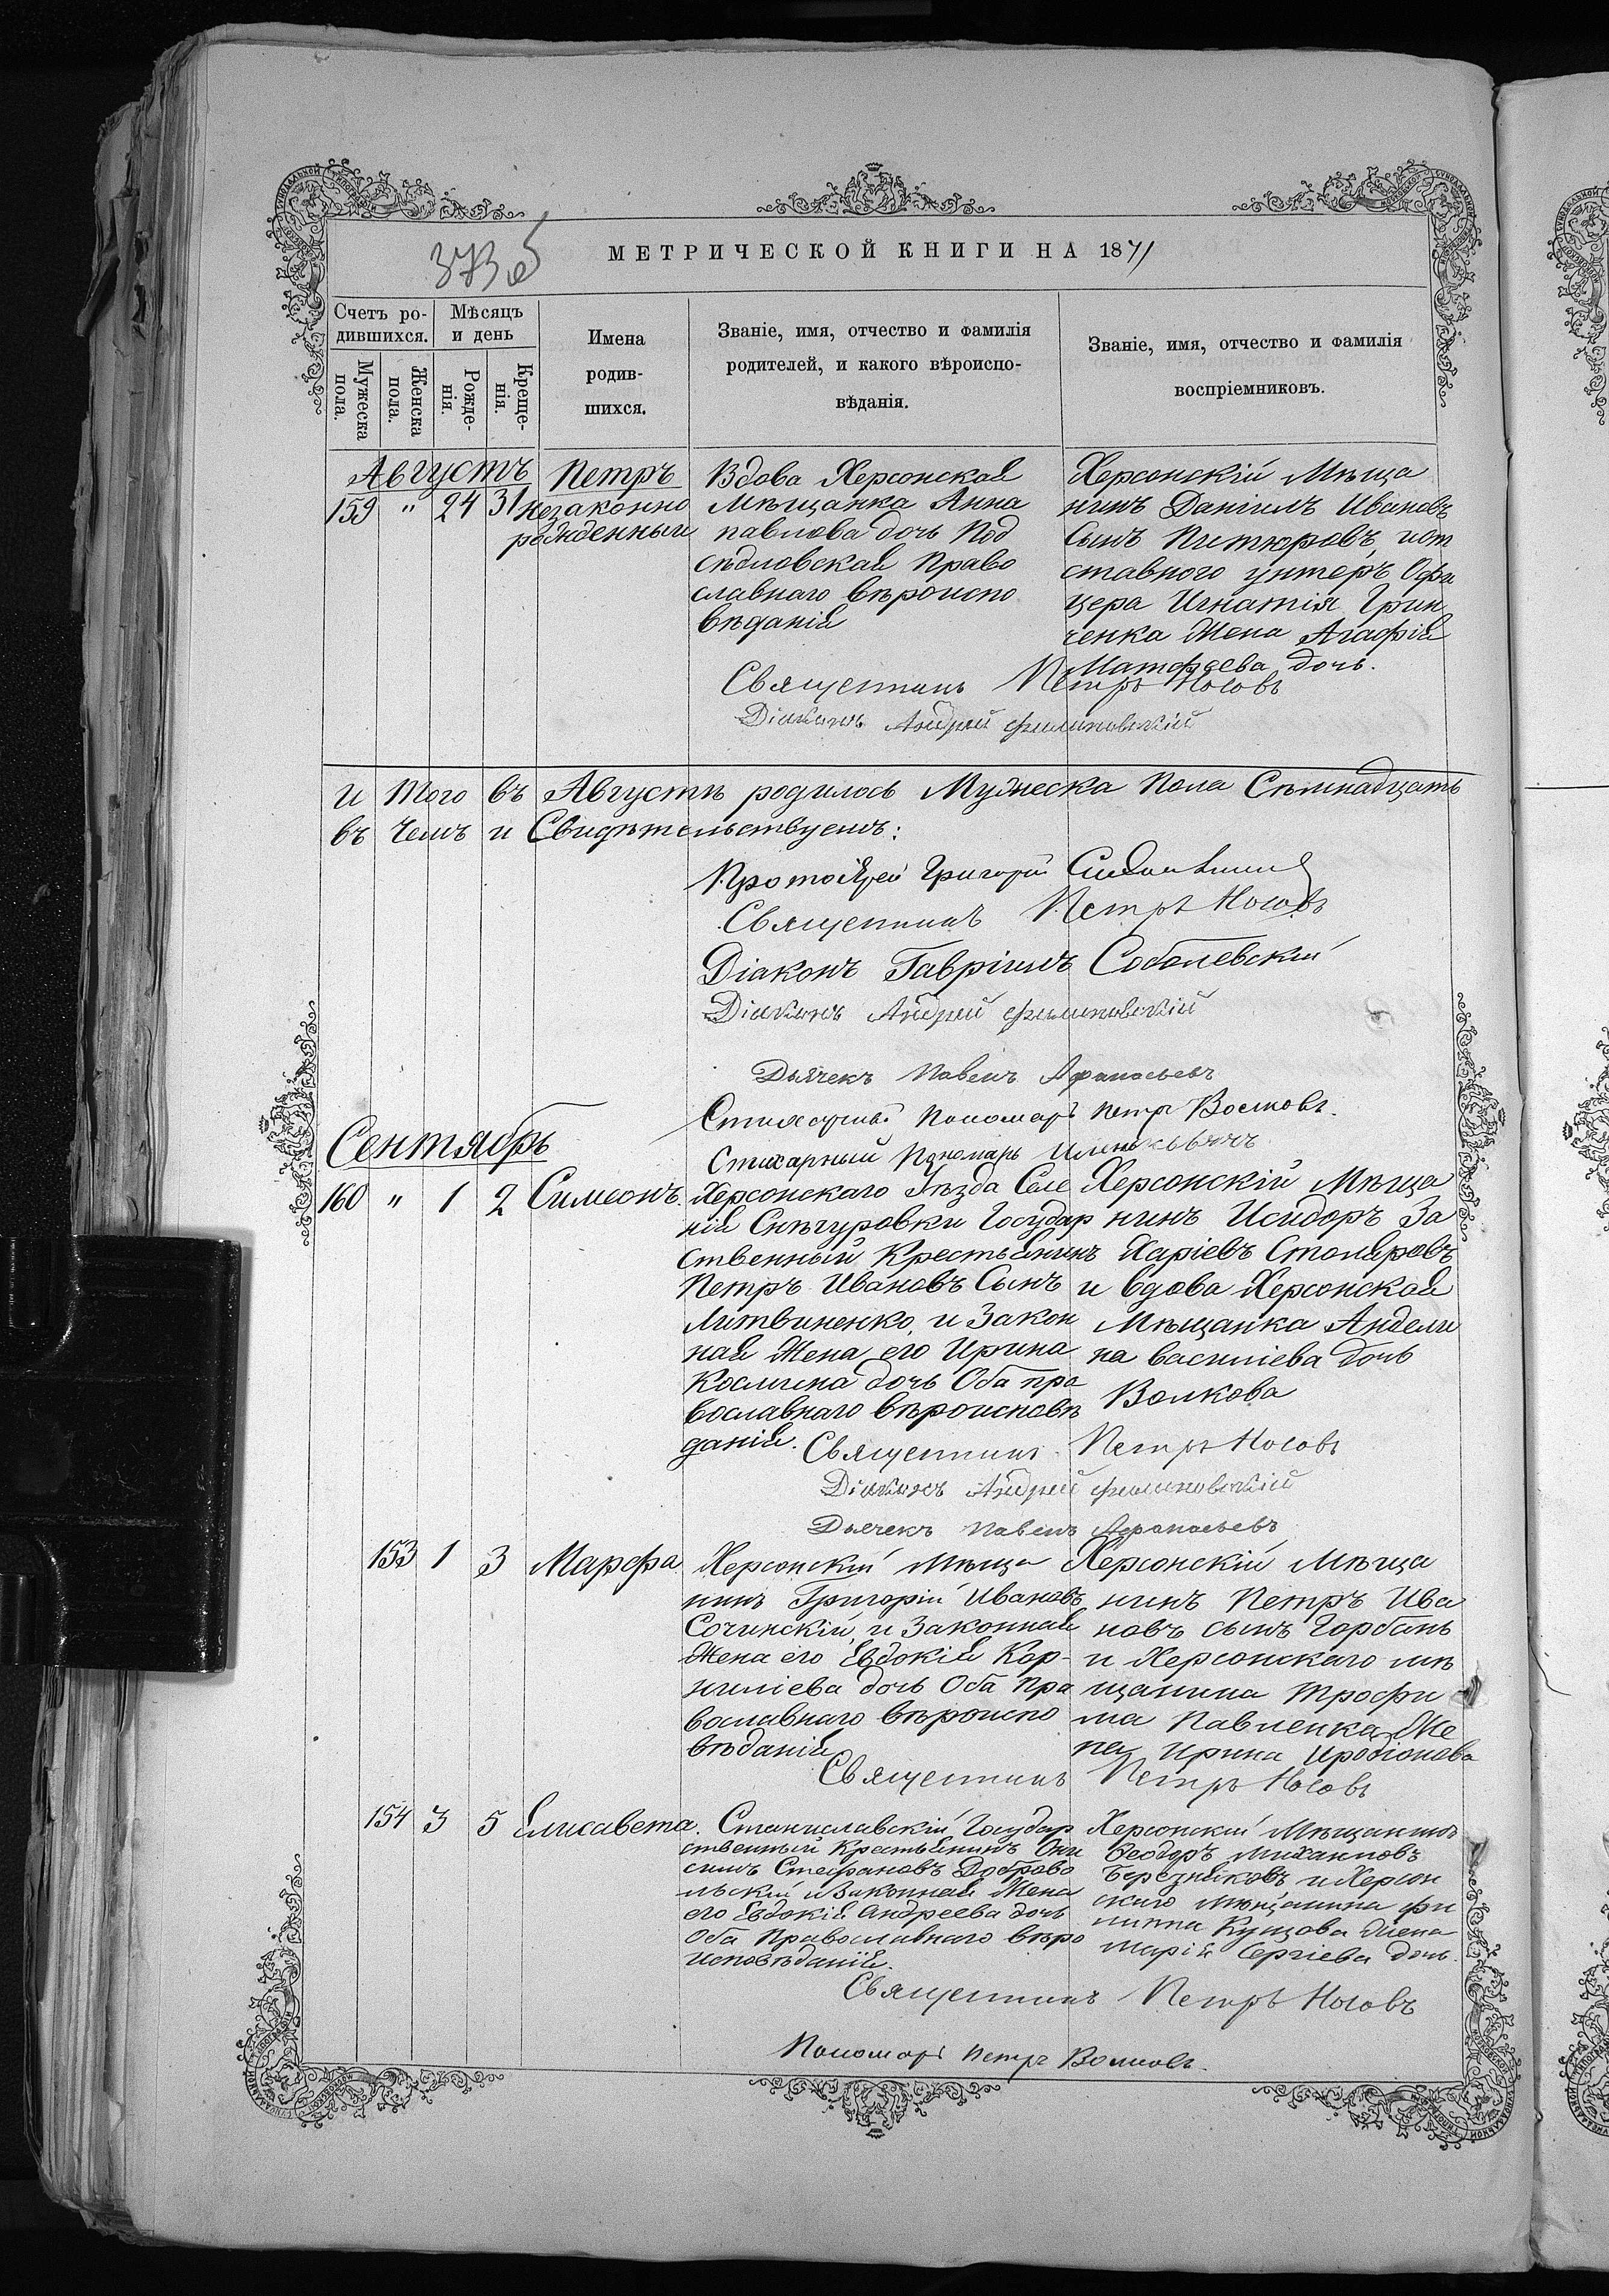 373 об
МЕТРИЧЕСКОЙ КНИГИ НА 1871
Счетъ ро-
дившихся.
Мужеска
пола.
Женска
пола.
Мѣсяцъ
и день
Рожде-
нія.
Креще-
нія.
Имена
родив-
шихся.
Званіе, имя, отчество и фамилія
родителей, и какого вѣроиспо-
вѣданія.
Званіе, имя, отчество и фамилія
воспріемниковъ.
Августъ
159 " 24 31
Петръ
незаконно
рожденный
Вдова Херсонская
Мѣщанка Анна
павлова дочь Под
сѣдловская Право
славнаго вѣроиспо
вѣданія
Херсонскій Мѣща
нинъ Даніилъ Ивановъ
Сынъ Питюровъ, иот
ставного унтеръ Офи
цера Игнатія Грин
ченка Жена Агафія
Матфѣева дочь.
Священникъ Петръ Носовъ
Діаконъ Андрей Филиповскій
и Того въ Августѣ родилось Мужеска Пола Сѣмнадцать
въ Чемъ и Свидѣтельствуемъ:
Протоіерей Григорій
Священникъ Петръ Носовъ
Діаконъ Гавріилъ Соболевскій
Діаконъ Андрей Филиповскій
Дьячекъ Павелъ Афанасьевъ
Стихарный Пономарь Петръ Волковъ.
Стихарный Пономарь
Сентябрь
160 " 1 2 Симеонъ.
Херсонскаго Уѣзда Селе
нія Снѣгуровки Государ
ственный Крестьянинъ
Петръ Ивановъ Сынъ
Литвиненко, и Закон
ная Жена его Ирина
Космина дочь Оба пра
вославнаго вѣроисповѣ
данія.
Херсонскій Мѣща
нинъ Исидоръ За
харіевъ Столяровъ
и вдова Херсонская
Мѣщанка Ангели
на василіева дочь
Волкова
Священникъ Петръ Носовъ
Діаконъ Андрей Филиповскій
Дьячекъ Павелъ Афанасьевъ
153 1 3 Марфа
Херсонскій Мѣща
нинъ Григорій Ивановъ
Сочинскій, и Законная
Жена его Евдокія Кор-
нилiева дочь Оба Пра
вославнаго вѣроиспо
вѣданія
Херсонскій Мѣща
нинъ Петръ Ива
новъ сынъ Горбань
и Херсонскаго мѣ
щанина Трофи
ма Павленка Же
на Ирина Иродіонова
Священникъ Петръ Носовъ
154 3 5 Елисавета.
Станиславскій Государ
ственный Крестьянинъ Они
симъ Стефановъ Доброво
льскій и Законная Жена
его Евдокія Андреева дочь
Оба Православнаго вѣро
исповѣданія.
Херсонскій Мѣщанинъ
Ѳеодоръ Михаиловъ
Березняковъ и Херсон
скаго мѣщанина Фи
липпа Купцова Жена
Марія Сергіева дочь.
Священникъ Петръ Носовъ
Пономарь Петръ Волковъ.